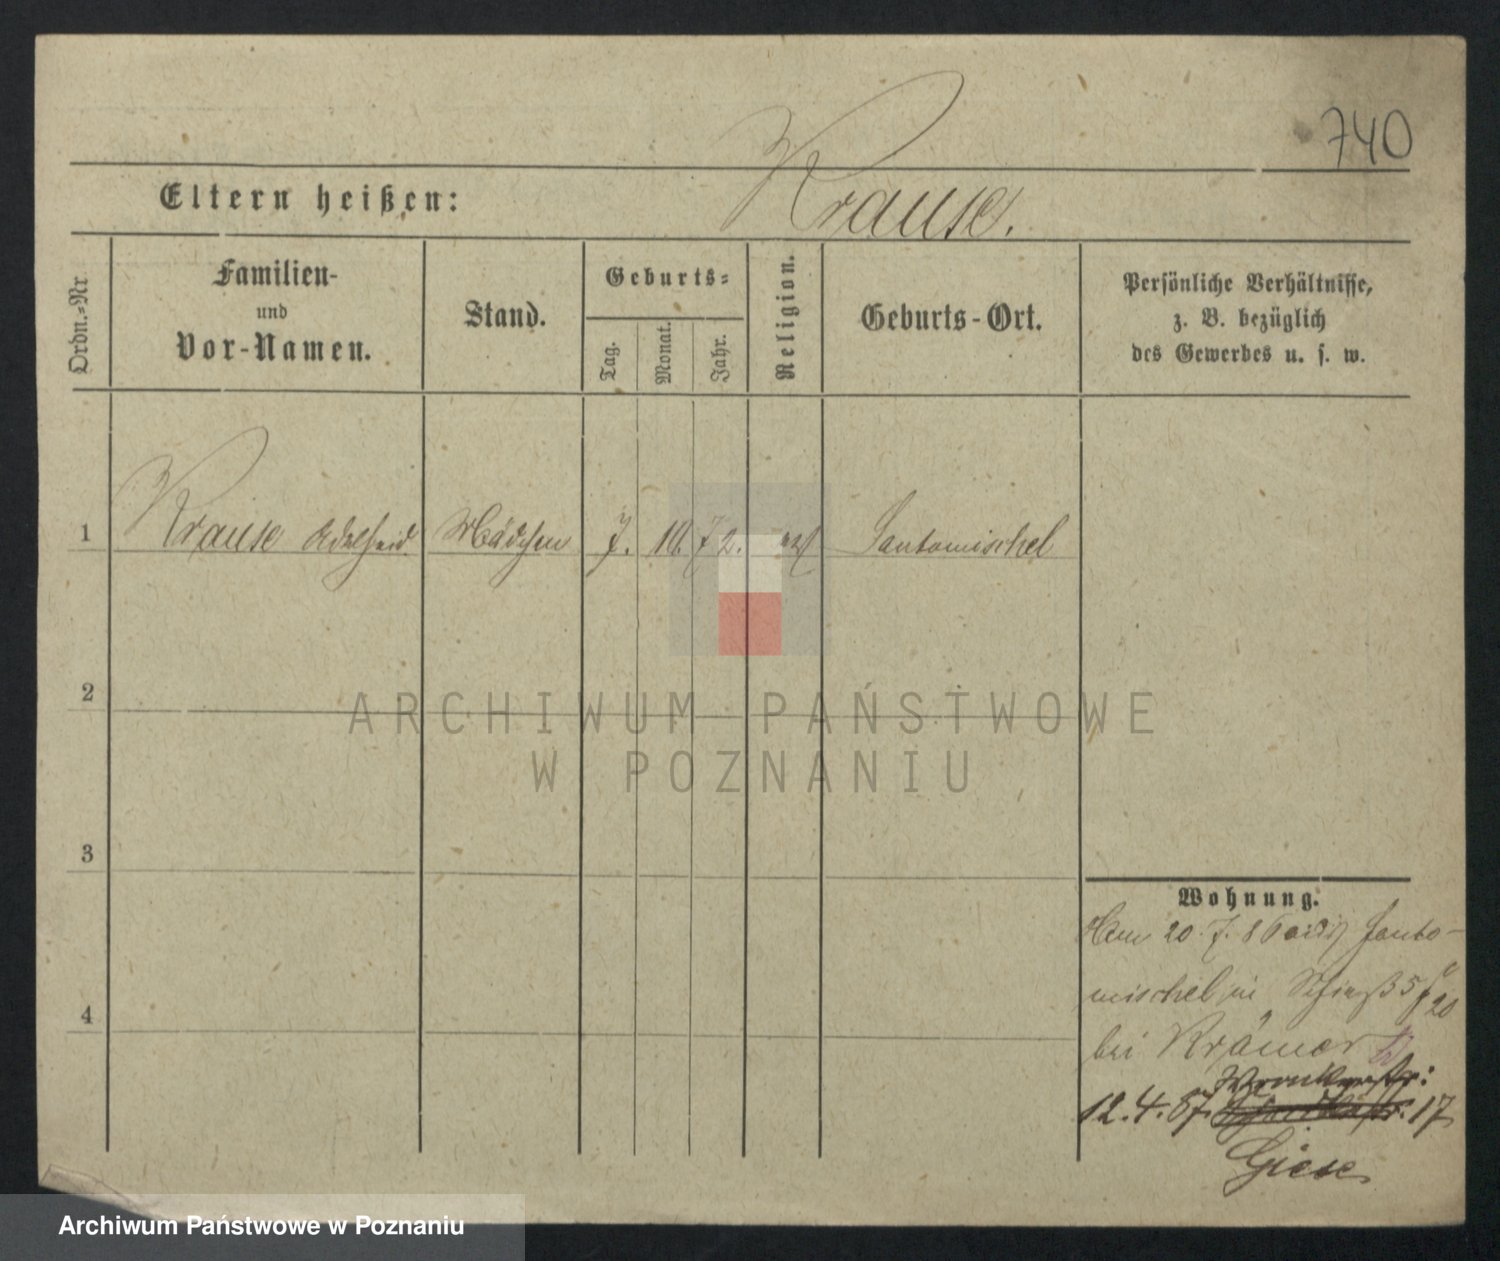 740
Eltern heißen: Krause.
Ordn.-Nr
Familien-
und
Vor-Namen.
Stand.
Geburts-
Tag.
Monat.
Jahr.
Religion.
Geburts-Ort.
Persönliche Verhältnisse,
z. B. bezüglich
des Gewerbes u. s. w.
1 Krause Adelheid. Mädchen 7. 10. 72. Santomischel
2
ARCHIWUM PAŃSTWOWE
W POZNANIU
3
4
Wohnung.
Am 20. 7. 8 Santo-
mischel in 5 20
bei Krämer
Wronkerstr:
12. 4. 87. 17
Giese
Archiwum Państwowe w Poznaniu